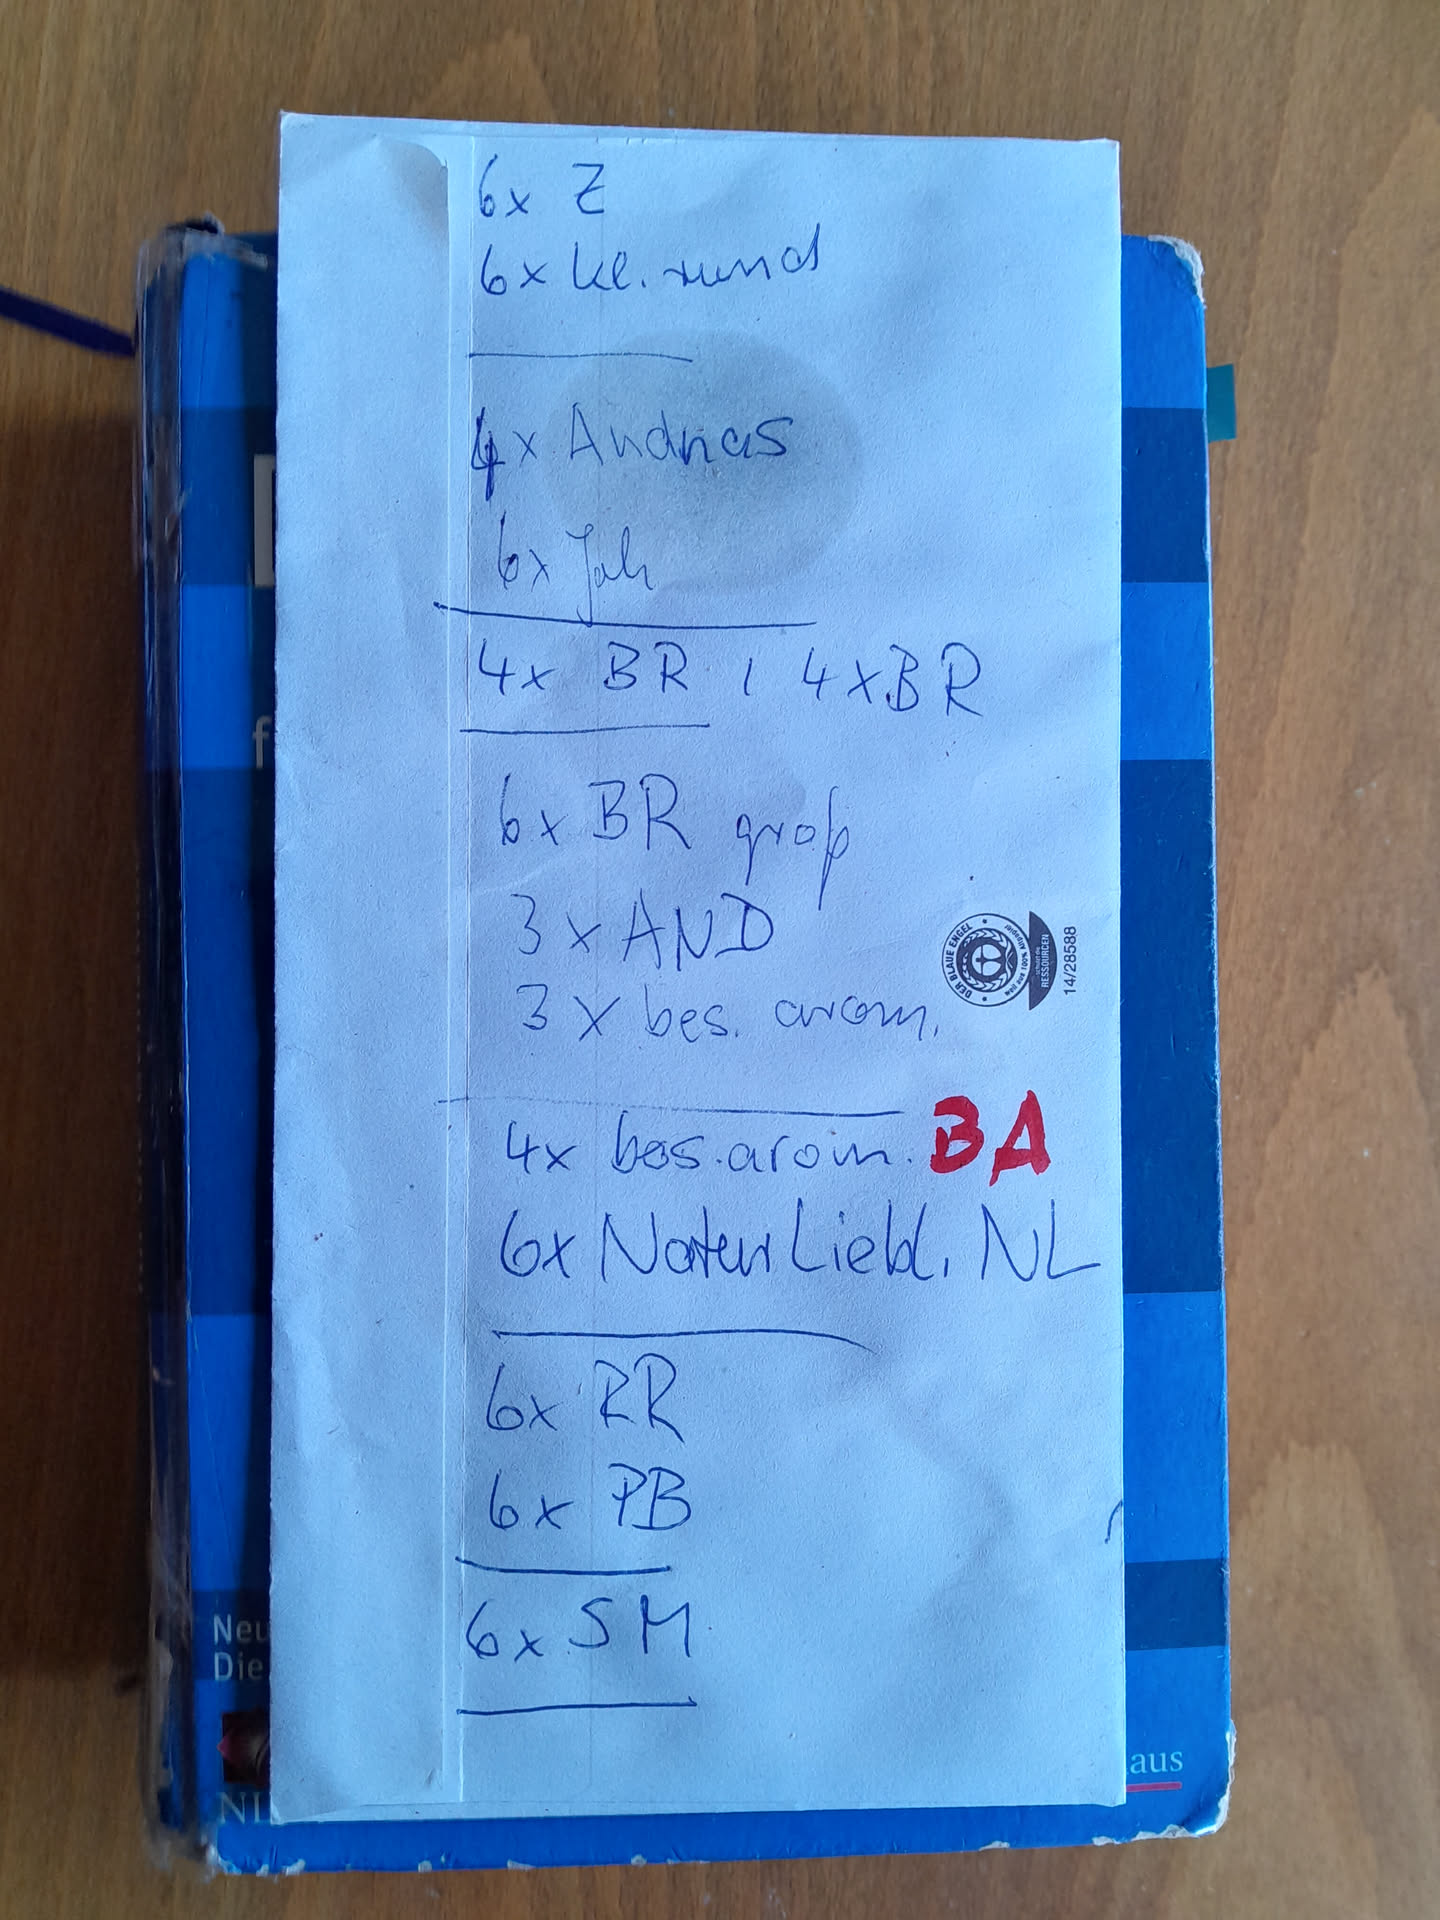 6x Z
6x kl. rund
4x Andreas
6x Joh
4x BR / 4xBR
6x BR groß
3x AND
3x bes. arom.
DER BLAUE ENGEL
schützt die
RESSOURCEN
weil aus 100% Altpapier
14/28588
4x bes. arom. BA
6x Natur Liebl. NL
6x RR
6x PB
6x SM
Neu
Die
aus